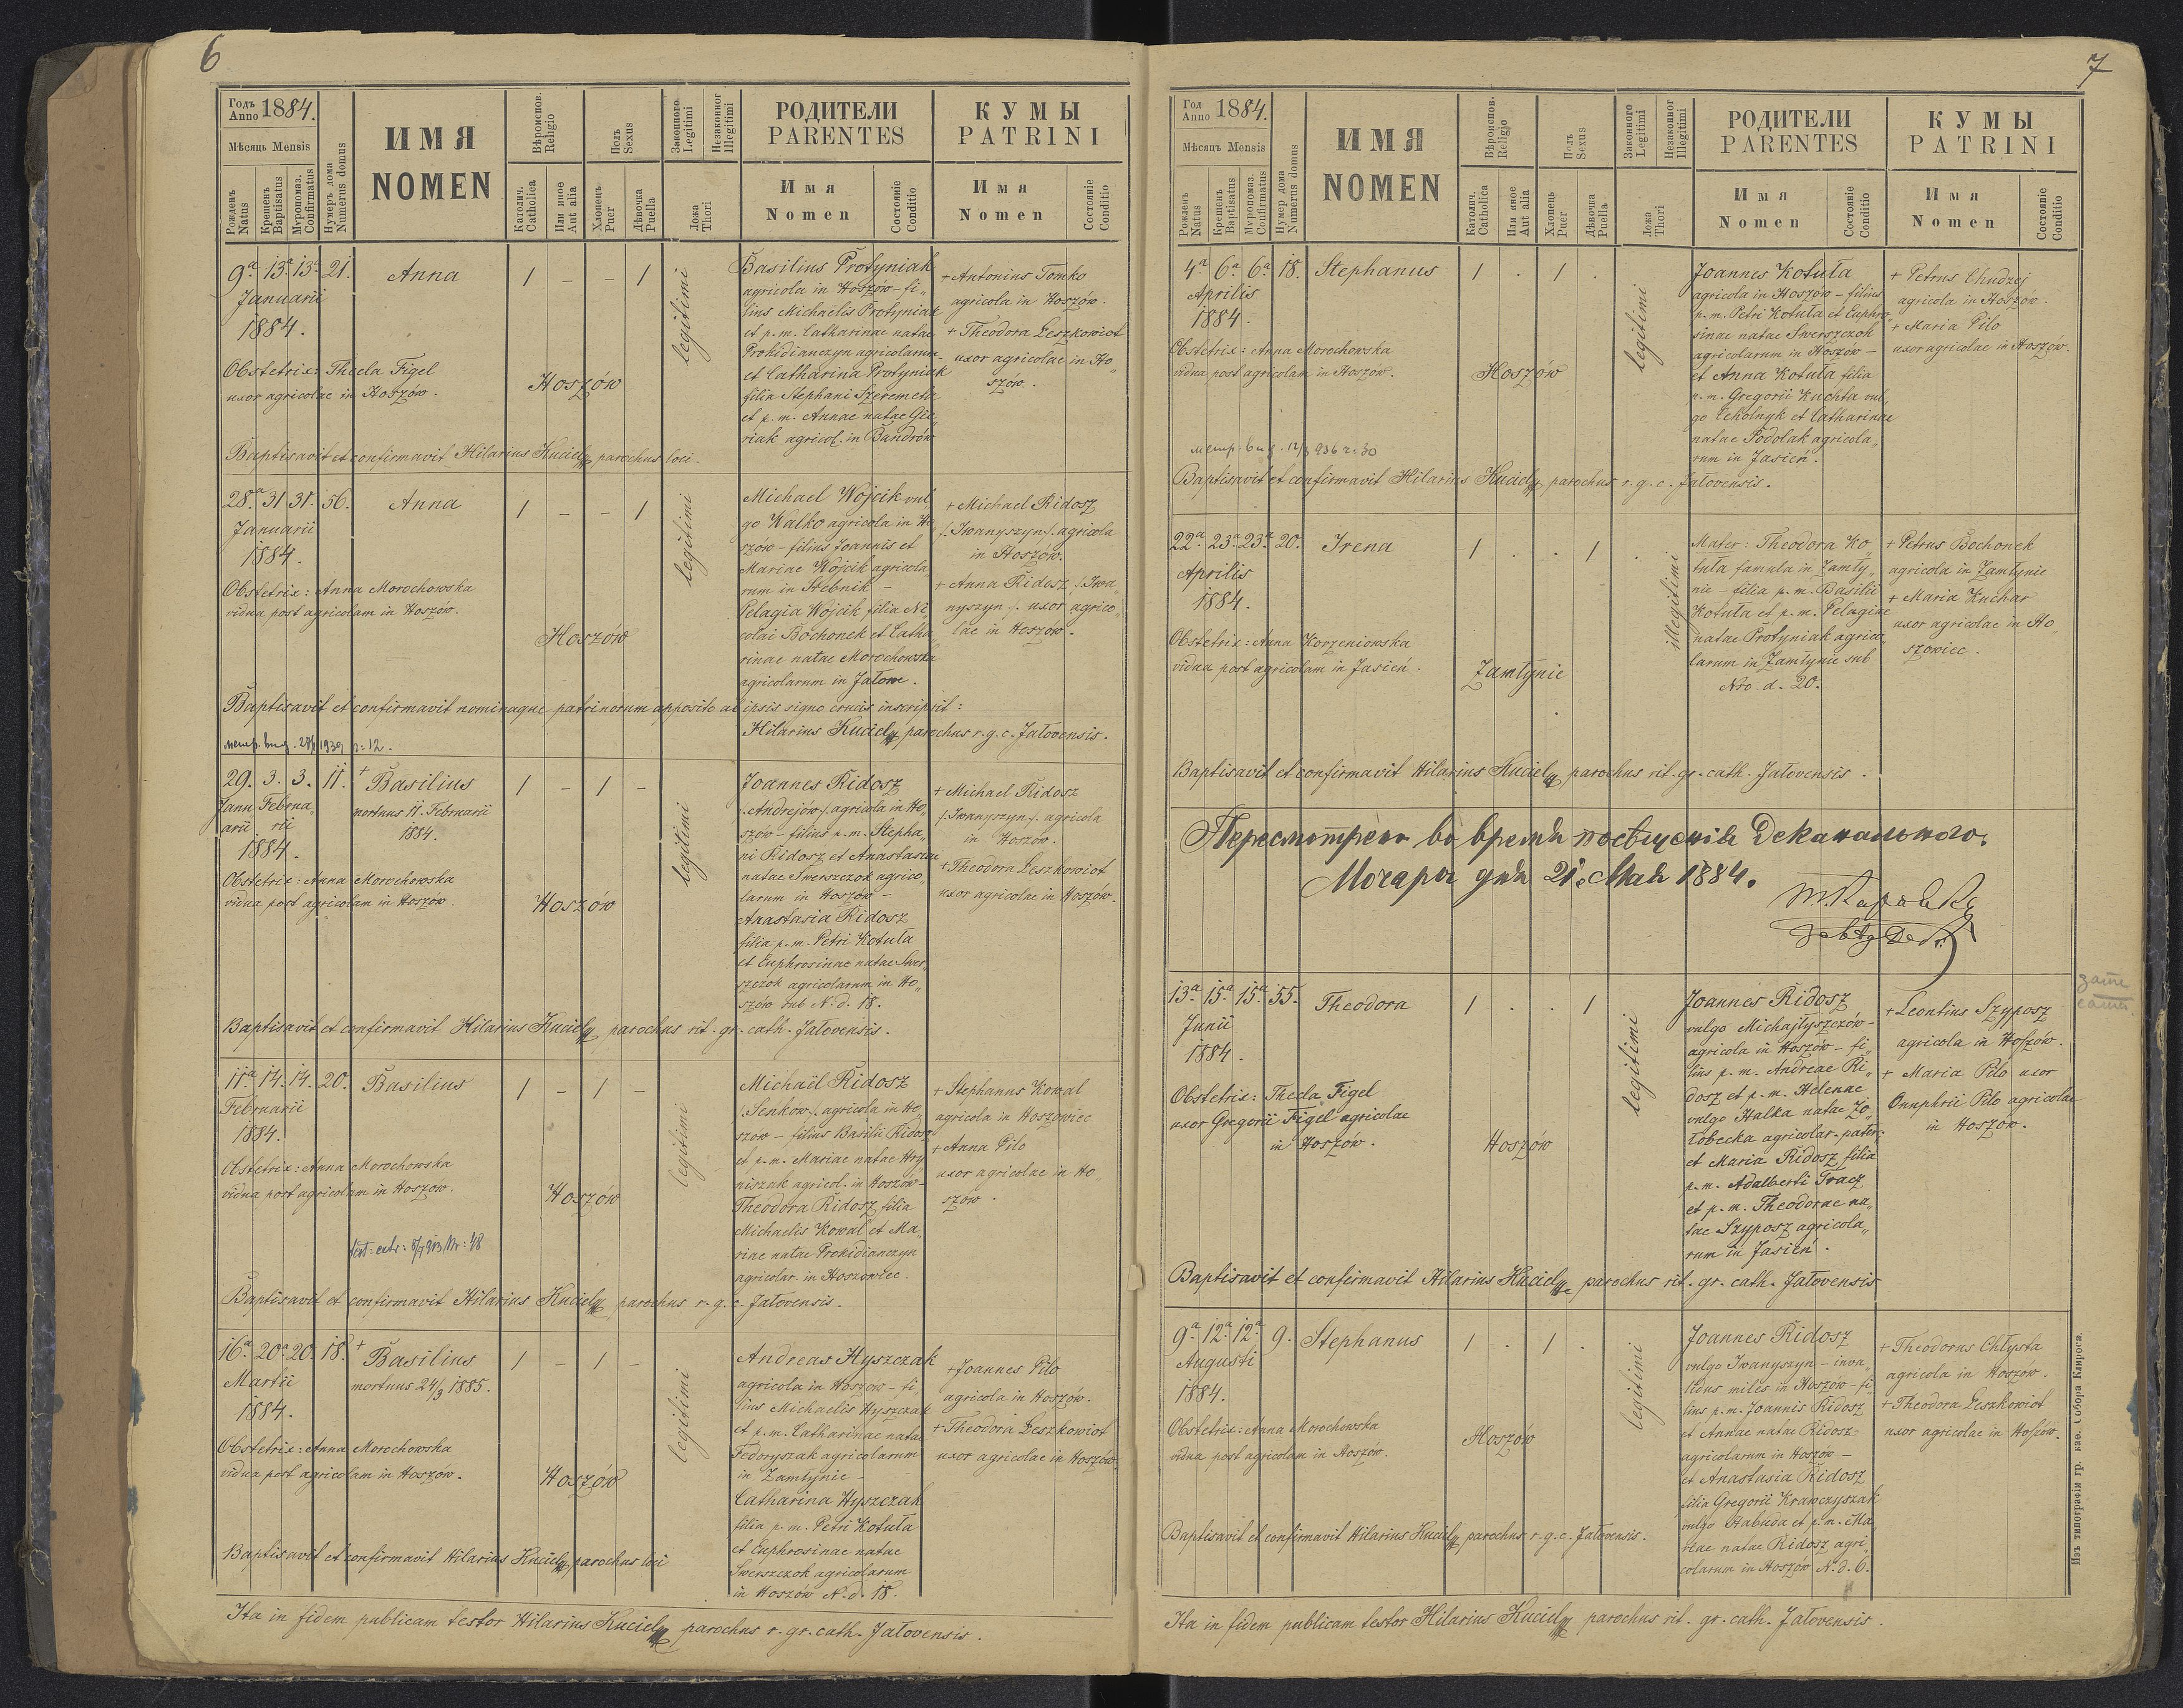 6
Годъ Anno 1884.
Мѣсяць Mensis
Рожденъ Natus
Крещенъ Baptisatus
Мѵропомаз. Confirmatus
Нумеръ дома Numerus domus
ИМЯ
NOMEN
Вѣроиспов. Religio
Католич. Catholica
Или иное Aut alia
Полъ Sexus
Хлопецъ Puer
Дѣвочка Puella
Законного Legitimi
Незаконног Illegitimi
Ложа Thori
РОДИТЕЛИ
PARENTES
Имя Nomen
Состоянie Conditio
КУМЫ
PATRINI
Имя Nomen
Состоянie Conditio
9a. 13a. 13a. 21. Anna 1 – – 1
Januarii
1884.
Obstetrix: Thecla Figel
uxor agricolae in Hoszów.
Hoszów
legitimi
Basilius Protyniak
agricola in Hoszów – fi„
lius Michaelis Protyniak
et p. m. Catharinae natae
Prokidianczyn agricolarum –
et Catharina Protyniak
filia Stephani Szeremeta
et p. m. Annae natae Gie„
riak agricol. in Bandrów
+ Antonius Tomko
agricola in Hoszów.
+ Theodora Leszkowiot
uxor agricolae in Ho„
szów.
Baptisavit et confirmavit Hilarius Kuciely parochus loci.
28.a 31 31. 56. Anna 1 – – 1
Januarii
1884.
Obstetrix: Anna Morochowska
vidua post agricolam in Hoszów.
Hoszów
legitimi
Michael Wojcik vul„
go Walko agricola in Ho„
szów – filius Joannis et
Mariae Wojcik agricola„
rum in Stebnik –
Pelagia Wojcik filia Ni„
colai Bochonek et Catha„
rinae natae Morochowska
agricolarum in Jałowe.
+ Michael Ridosz
/. Iwanyszyn ./. agricola
in Hoszów.
+ Anna Ridosz /. Iwa„
nyszyn ./. uxor agrico„
lae in Hoszów.
Baptisavit et confirmavit nominaque patrinorum apposito ab ipsis signo crucis inscripsit:
Hilarius Kuciely parochus r. g. c. Jałovensis.
29. 3. 3. 11. + Basilius 1 – 1 –
Janu„ Februa„
arii rii
1884.
mortuus 11. Februarii
1884.
Obstetrix: Anna Morochowska
vidua post agricolam in Hoszów.
Hoszów
legitimi
Joannes Ridosz
/. Andrejów ./. agricola in Ho„
szów – filius p. m. Stepha„
ni Ridosz et Anastasiae
natae Swerszczok agrico„
larum in Hoszów –
Anastasia Ridosz
filia p. m. Petri Kotuła
et Euphrosinae natae Swer„
szczok agricolarum in Ho„
szów sub N. d. 18.
+ Michael Ridosz
/. Iwanyszyn ./. agricola
in Hoszów.
+ Theodora Leszkowiot
uxor agricolae in Hoszów.
Baptisavit et confirmavit Hilarius Kuciely parochus rit. gr. cath. Jałovensis.
11.a 14. 14. 20. Basilius 1 – 1 –
Februarii
1884.
Obstetrix: Anna Morochowska
vidua post agricolam in Hoszów.
Hoszów
legitimi
Michaël Ridosz
/. Seńków ./. agricola in Ho„
szów – filius Basilii Ridosz
et p. m. Mariae natae Hry„
niszak agricol. in Hoszów –
Theodora Ridosz filia
Michaelis Kowal et Ma„
riae natae Prokidianczyn
agricolar. in Hoszowiec.
+ Stephanus Kowal
agricola in Hoszowiec
+ Anna Pilo
uxor agricolae in Ho„
szów.
Baptisavit et confirmavit Hilarius Kuciely parochus r. g. c. Jałovensis.
16.a 20.a 20. 18. + Basilius 1 – 1 –
Martii
1884.
mortuus 24/3 1885.
Obstetrix: Anna Morochowska
vidua post agricolam in Hoszów.
Hoszów
legitimi
Andreas Hyszczak
agricola in Hoszow – fi„
lius Michaelis Hyszczak
et p. m. Catharinae natae
Fedoryszak agricolarum
in Zamłynie –
Catharina Hyszczak
filia p. m. Petri Kotuła
et Euphrosinae natae
Swerszczok agricolarum
in Hoszów N. d. 18.
+ Joannes Pilo
agricola in Hoszów.
+ Theodora Leszkowiot
uxor agricolae in Hoszów.
Baptisavit et confirmavit Hilarius Kuciely parochus loci
Ita in fidem publicam testor Hilarius Kuciely parochus r. gr. cath. Jałovensis.
7
Год Anno 1884.
Мѣсяцъ Mensis
Рожденъ Natus
Крещенъ Baptisatus
Мѵропомаз. Confirmatus
Нумер дома Numerus domus
ИМЯ
NOMEN
Вѣроиспов. Religio
Католич. Catholica
Или иное Aut alia
Полъ Sexus
Хлопецъ Puer
Дѣвочка Puella
Законного Legitimi
Незаконног Illegitimi
Ложа Thori
РОДИТЕЛИ
PARENTES
Имя Nomen
Состоянie Conditio
КУМЫ
PATRINI
Имя Nomen
Состоянie Conditio
4.a 6.a 6.a 18. Stephanus 1 . 1 .
Aprilis
1884.
Obstetrix: Anna Morochowska
vidua post agricolam in Hoszów.
Hoszów
legitimi
Joannes Kotuła
agricola in Hoszów – filius
p. m. Petri Kotuła et Euphro„
sinae natae Swerszczok
agricolarum in Hoszów –
et Anna Kotuła filia
p. m. Gregorii Kuchta vul„
go Cekolnyk et Catharinae
natae Podolak agricola„
rum in Jasień.
+ Petrus Chudzej
agricola in Hoszów.
+ Maria Pilo
uxor agricolae in Hoszów.
Baptisavit et confirmavit Hilarius Kuciely, parochus r. g. c. Jałovensis.
22.a 23.a 23.a 20. Irena 1 . . 1 .
Aprilis
1884.
Obstetrix: Anna Korzeniowska
vidua post agricolam in Jasień.
Zamłynie
illegitimi
Mater: Theodora Ko„
tuła famula in Zamły„
nie – filia p. m. Basilii
Kotuła et p. m. Pelagiae
natae Protyniak agrico„
larum in Zamłynie sub
Nro. d. 20.
+ Petrus Bochonek
agricola in Zamłynie
+ Maria Kuchar
uxor agricolae in Ho„
szowiec.
Baptisavit et confirmavit Hilarius Kuciely parochus rit. gr. cath. Jałovensis.
Пересмотрено во время посѣщенія Деканального.
Мочары дня 21. Мая 1884.
13.a 15.a 15.a 55. Theodora 1 . . 1
Junii
1884.
Obstetrix: Thecla Figel
uxor Gregorii Figel agricolae
in Hoszów.
Hoszów
legitimi
Joannes Ridosz
vulgo Michajłyszczów –
agricola in Hoszów – fi„
lius p. m. Andreae Ri„
dosz et p. m. Helenae
vulgo Halka natae Żo„
łobecka agricolar. pater;
et Maria Ridosz filia
p. m. Adalberti Tracz
et p. m. Theodorae na„
tae Szyposz agricola„
rum in Jasień.
+ Leontius Szyposz
agricola in Hoszów.
+ Maria Pilo uxor
Onuphrii Pilo agricolae
in Hoszów.
Baptisavit et confirmavit Hilarius Kuciely parochus rit. gr. cath. Jałovensis
9.a 12.a 12.a 9. Stephanus 1 . 1 .
Augusti
1884.
Obstetrix: Anna Morochowska
vidua post agricolam in Hoszów.
Hoszów
legitimi
Joannes Ridosz
vulgo Iwanyszyn – inva„
lidus miles in Hoszów – fi„
lius p. m. Joannis Ridosz
et Annae natae Ridosz –
agricolarum in Hoszów –
et Anastasia Ridosz
filia Gregorii Krawczyszak
vulgo Habuda et p. m. Ma„
riae natae Ridosz agri„
colarum in Hoszów N. d. 6.
+ Theodorus Chłysta
agricola in Hoszów.
+ Theodora Leszkowiot
uxor agricolae in Hoszów.
Baptisavit et confirmavit Hilarius Kuciely parochus r. g. c. Jałovensis.
Ita in fidem publicam testor Hilarius Kuciely parochus rit. gr. cath. Jałovensis.
Изъ типографіи гр. кае. Собора Клироса.